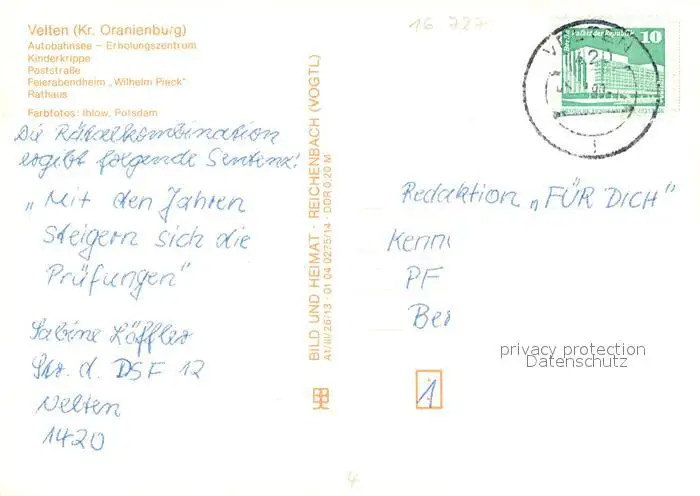 Velten (Kr. Oranienburg)
Autobahnsee – Erholungszentrum
Kinderkrippe
Poststraße
Feierabendheim „Wilhelm Pieck"
Rathaus
Farbfotos: Ihlow, Potsdam
Die Rätselkombination
ergibt folgende Sentenz:
„Mit den Jahren
steigern sich die
Prüfungen"
Sabine Löffler
Str. d. DSF 12
Velten
1420
BILD UND HEIMAT · REICHENBACH (VOGTL)
A1/III/26/13 · 01 04 0275/14 · DDR 0,20 M
16 787
VELTEN
1420
1
Palast der Republik
10
Redaktion „FÜR DICH"
Kenn
PF
Ber
1
privacy protection
Datenschutz
4